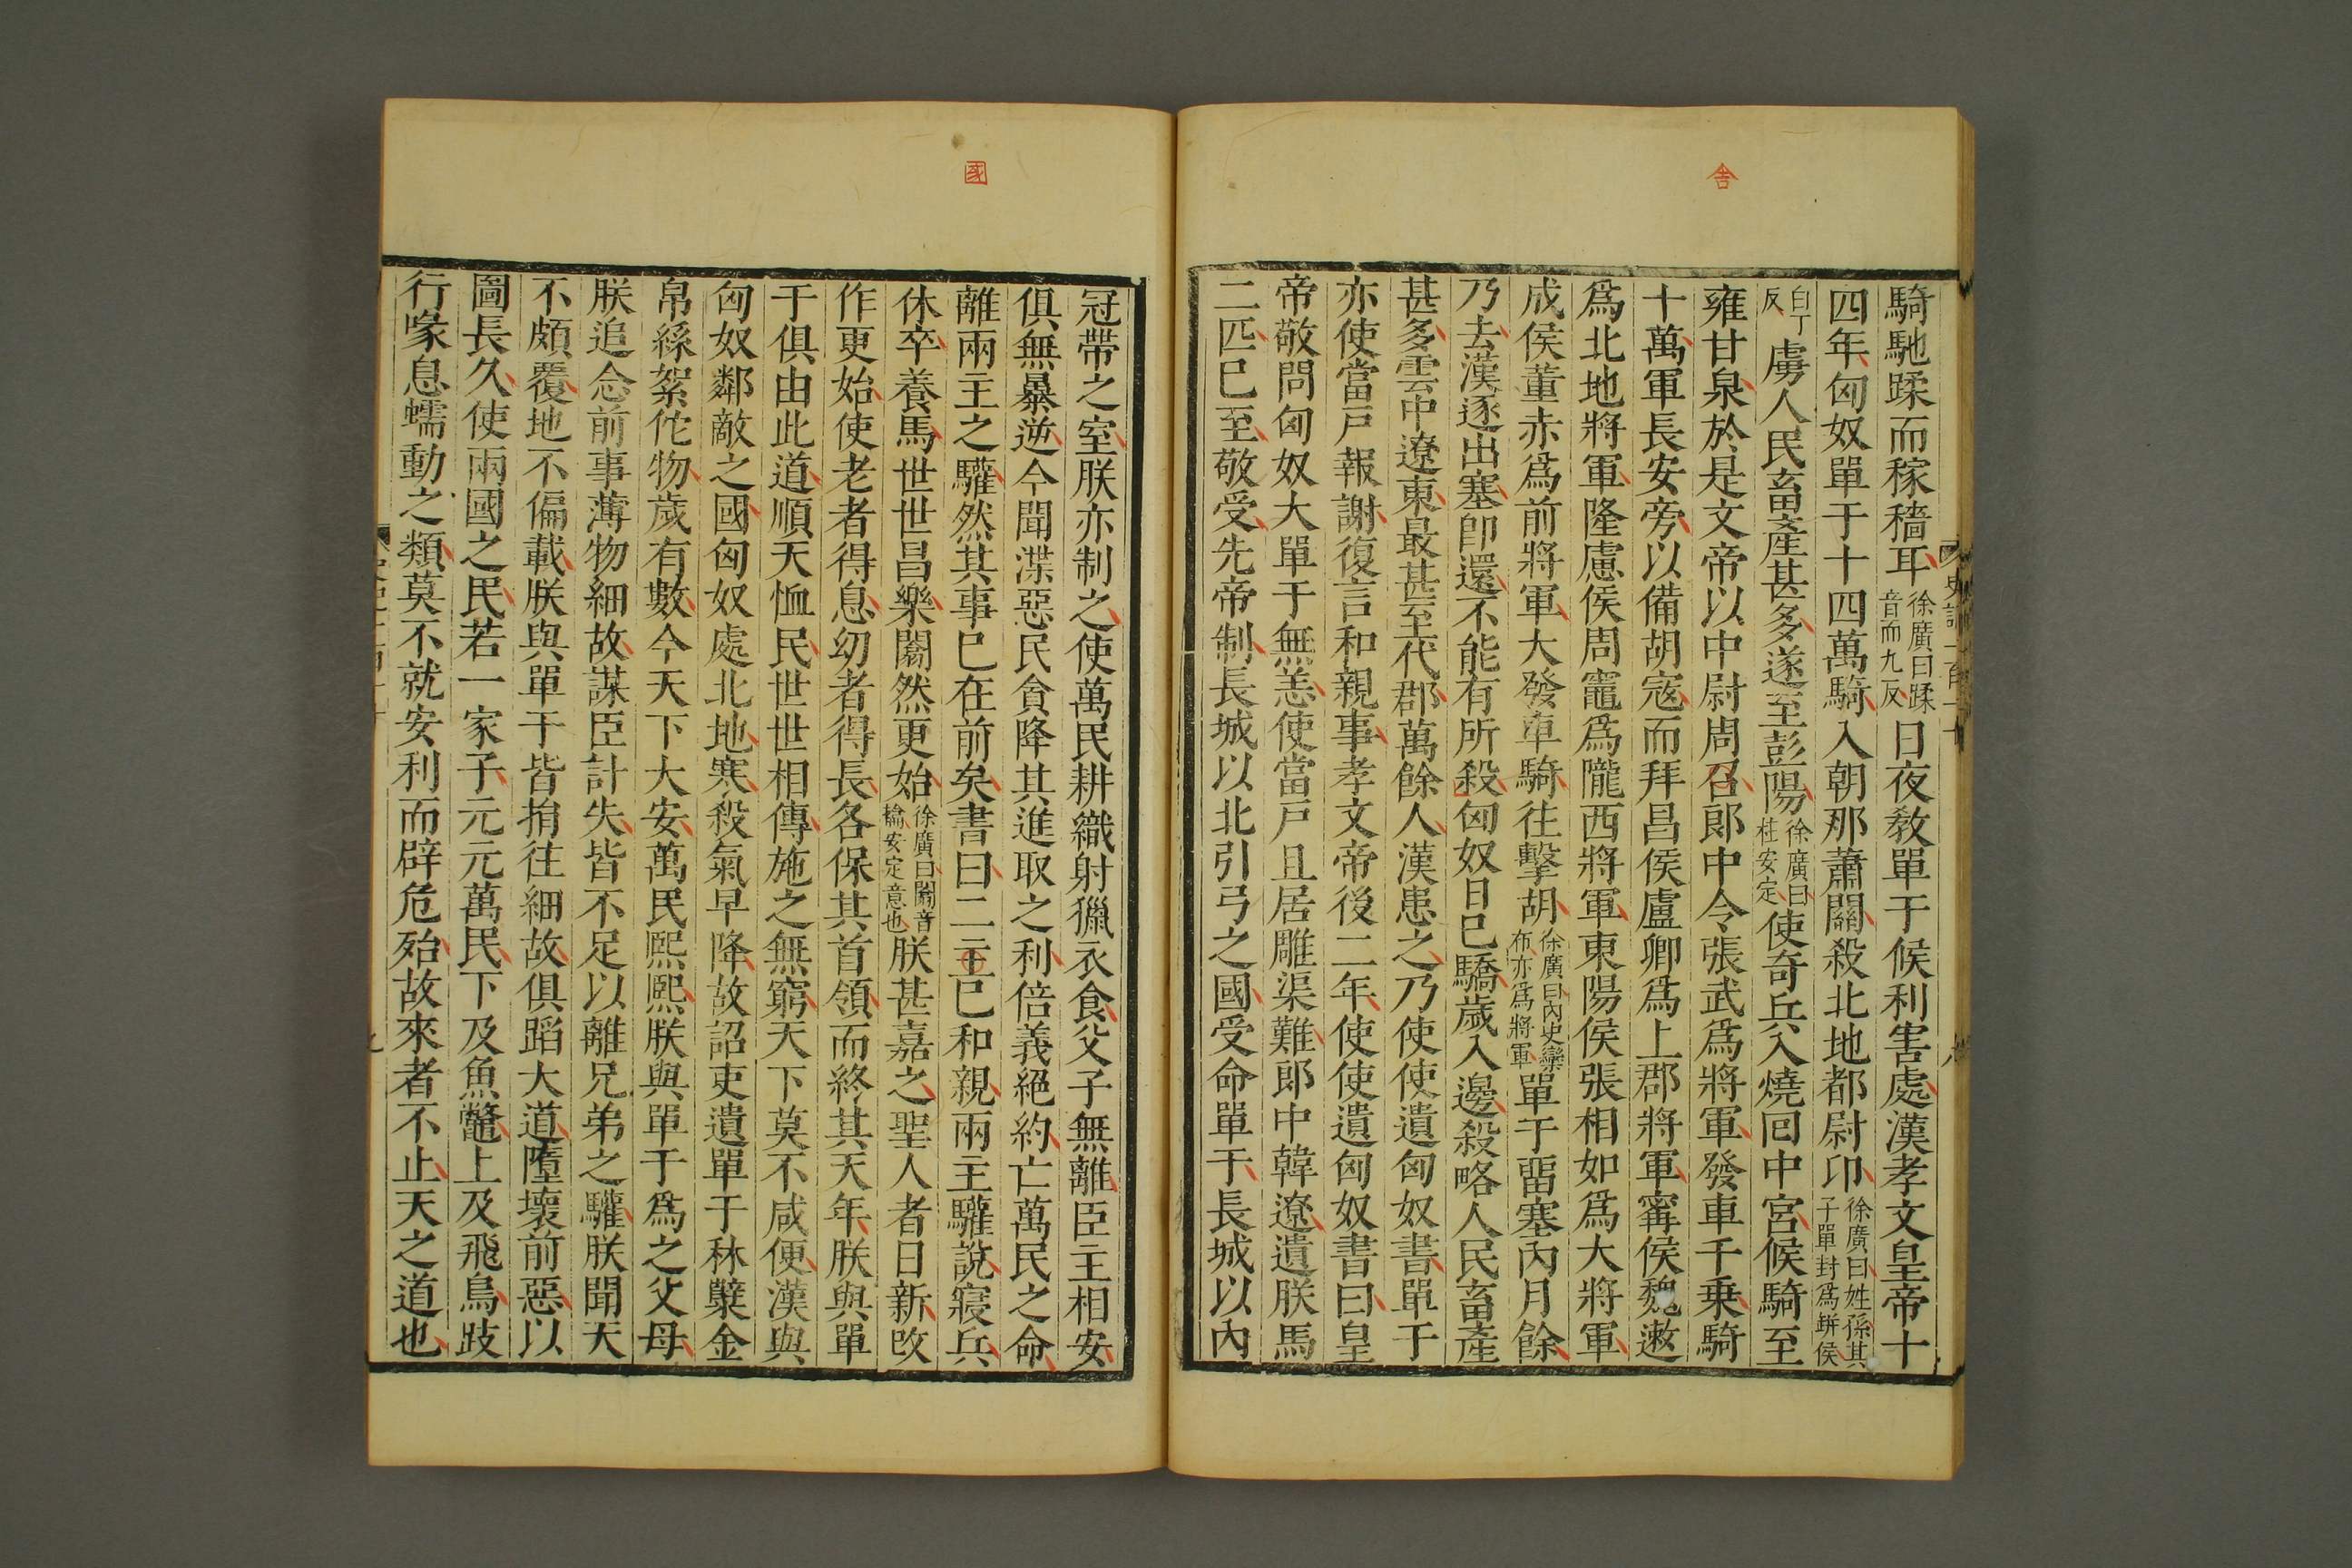 舍
騎馳蹂而稼穡耳徐廣曰蹂音而九反日夜敎單于候利害處漢孝文皇帝十
四年匈奴單于十四萬騎入朝那蕭關殺北地都尉卬徐廣曰姓孫其子單封爲缾侯
白丁反虜人民畜產甚多遂至彭陽徐廣曰在安定使奇兵入燒回中宮候騎至
雍甘泉於是文帝以中尉周召郞中令張武爲將軍發車千乗騎
十萬軍長安旁以備胡寇而拜昌侯盧卿爲上郡將軍甯侯魏遬
爲北地將軍隆慮侯周竈爲隴西將軍東陽侯張相如爲大將軍
成侯董赤爲前將軍大發車騎往擊胡徐廣曰內史欒布亦爲將軍單于畱塞內月餘
乃去漢逐出塞卽還不能有所殺匈奴日已驕歲入邊殺略人民畜產
甚多雲中遼東最甚至代郡萬餘人漢患之乃使使遺匈奴書單于
亦使當戸報謝復言和親事孝文帝後二年使使遺匈奴書曰皇
帝敬問匈奴大單于無恙使當戸且居雕渠難郞中韓遼遺朕馬
二匹已至敬受先帝制長城以北引弓之國受命單于長城以內
史記一百一十
八
國
冠帶之室朕亦制之使萬民耕織射獵衣食父子無離臣主相安
俱無暴逆今聞渫惡民貪降其進取之利倍義絕約亡萬民之命
離兩主之驩然其事已在前矣書曰二國已和親兩主驩說寢兵
休卒養馬世世昌樂闟然更始徐廣曰闟音榻安定意也朕甚嘉之聖人者日新改
作更始使老者得息幼者得長各保其首領而終其天年朕與單
于俱由此道順天恤民世世相傳施之無窮天下莫不咸便漢與
匈奴鄰敵之國匈奴處北地寒殺氣早降故詔吏遺單于秫糵金
帛絲絮佗物歲有數今天下大安萬民熙熙朕與單于爲之父母
朕追念前事薄物細故謀臣計失皆不足以離兄弟之驩朕聞天
不頗覆地不偏載朕與單于皆捐往細故俱蹈大道墮壞前惡以
圖長久使兩國之民若一家子元元萬民下及魚鼈上及飛鳥跂
行喙息蠕動之類莫不就安利而辟危殆故來者不止天之道也